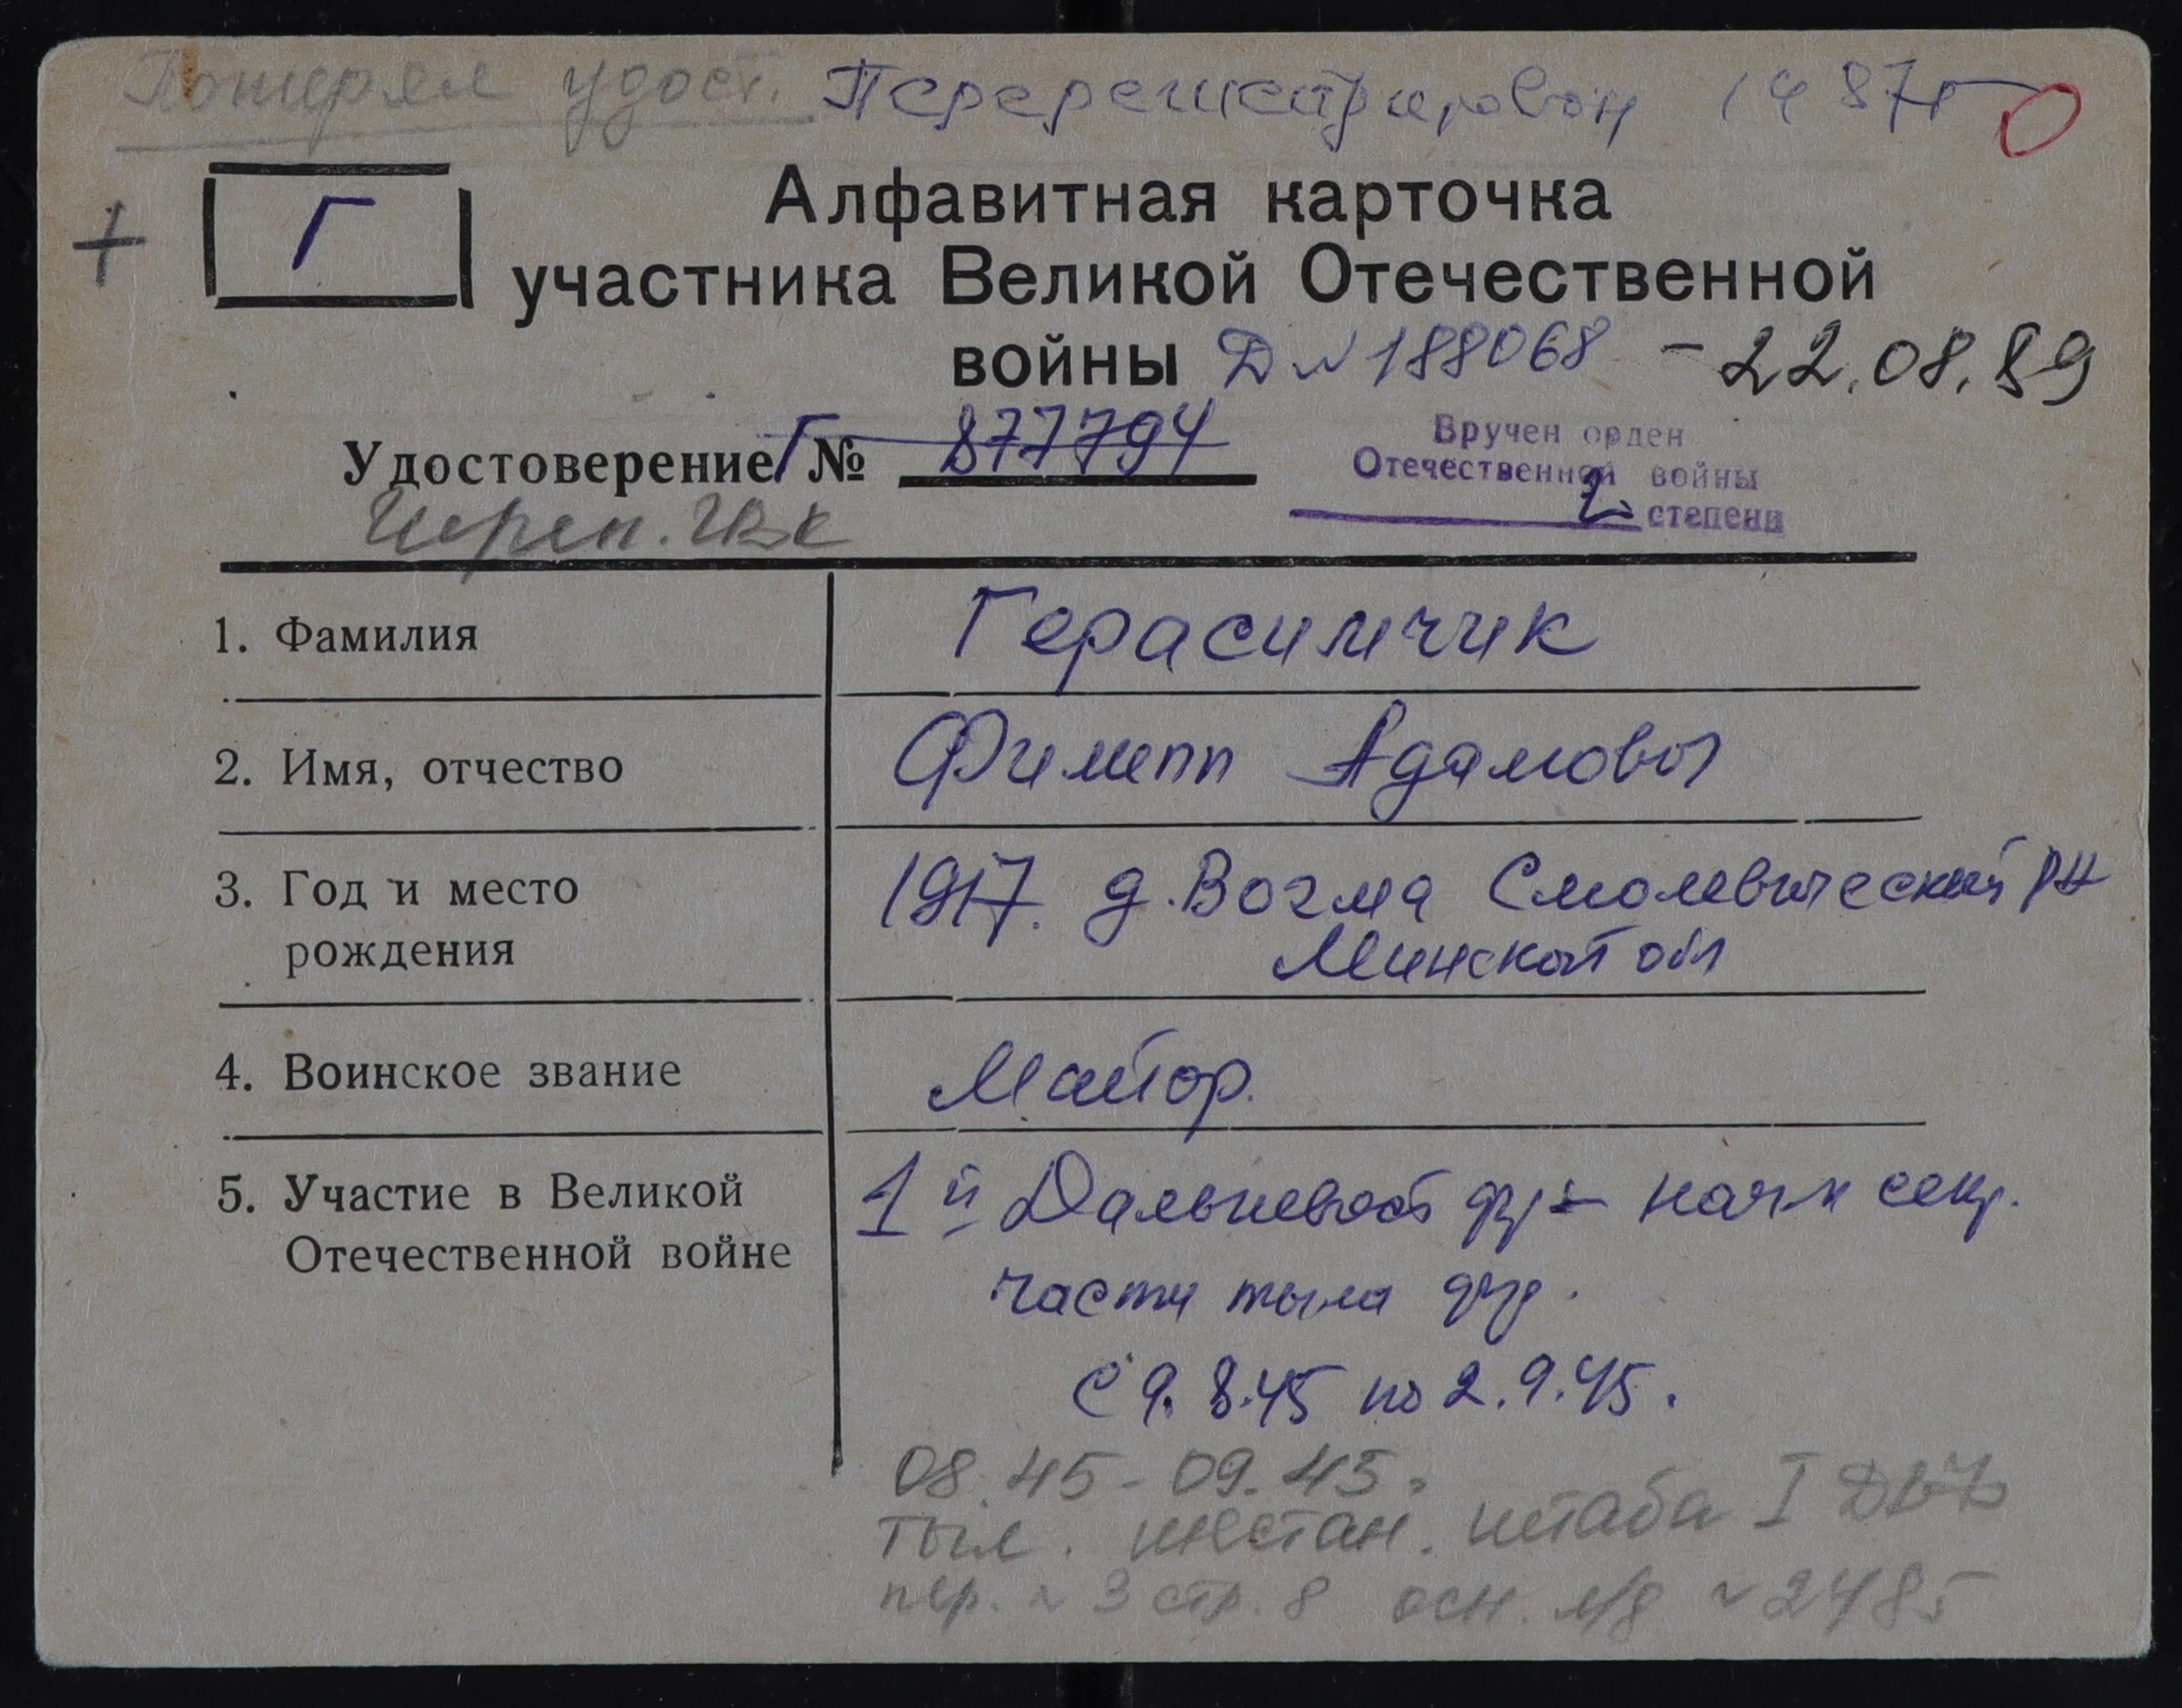 Потерял удост. Перерегистрирован 1987г
+ Г
Алфавитная карточка
участника Великой Отечественной
войны Д № 188068 - 22.08.89
Удостоверение Г № 877794
Вручен орден
Отечественной войны
2 степени
1. Фамилия Герасимчик
2. Имя, отчество Филипп Адамович
3. Год и место 1917. д. Вогма Смолевический р-н
рождения Минской обл
4. Воинское звание Майор.
5. Участие в Великой 1й Дальневост фр- нач-к секр.
Отечественной войне части тыла фр.
с 9.8.45 по 2.9.45.
08.45-09.45.
тыл. штаба I ДВФ
пер. № 3 стр. 8 осн. № 2485